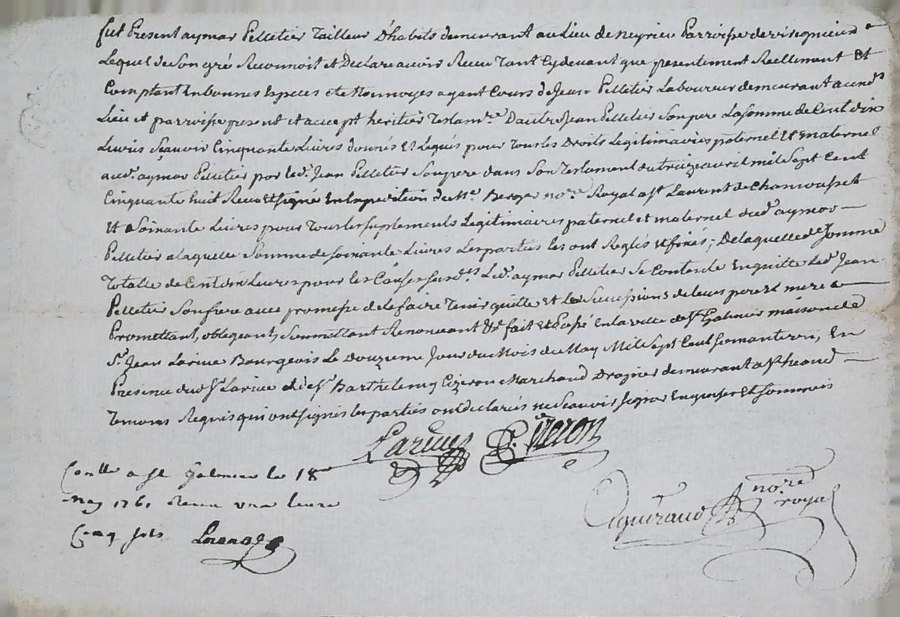 fut Present aymar Pelletier Tailleur D'habits demeurant au Lieu de neyrieu Parroisse de virigneux
Lequel de Son gré Reconnoit et Declare avoir Receu Tant Cydevant que presentement Reellement Et
Comptant En bonnes Especes et Monnoyes ayant Cours de Jean Pelletier Laboureur demeurant aud
Lieu et parroisse present et accept heritier Testamre D'autre Jean Pelletier Son pere La Somme de Cent dix
Livres Sçavoir Cinquante Livres donnés Et Legués pour Tous les Droits Legitimaires paternel Et maternel
aud. aymar Pelletier par led. Jean Pelletier Son pere dans Son Testament du treize avril mil Sept Cent
Cinquante huit Receu et Signé En Expedition de Me. Berger nore. Royal a St. Laurent de Chamousset
Et Soixante Livres pour Tous les Suplements Legitimaires paternel et maternel dud. aymar
Pelletier a laquelle Somme de Soixante Livres Les parties les ont Reglés et fixés; De laquelle de Somme
Totalle de Cent dix Livres pour les Causes Susdes. Led. aymar Pelletier Se Contente En quitte led. Jean
Pelletier Son frere avec promesse de le faire Tenir quitte et les Successions de leurs pere et mere
Promettant, obligeant, Soumettant Renonçant &c. fait et Passé En la ville de St. Galmier maison de
Sr. Jean Larive Bourgeois Le Douzieme Jour du Mois de May Mil Sept Cent Soixante un, En
Presence dud. Sr. Larive et de Sr. Barthelemy Cizeron Marchand Drapier demeurant a St. heand
Temoins Requis qui ont Signés les parties ont Declarés ne Sçavoir Signer Enquises Et Sommeés
Larive Cizeron
Conllé a St Galmier le 18e
may 1761 Receu une livre
Cinq sols
nore royal